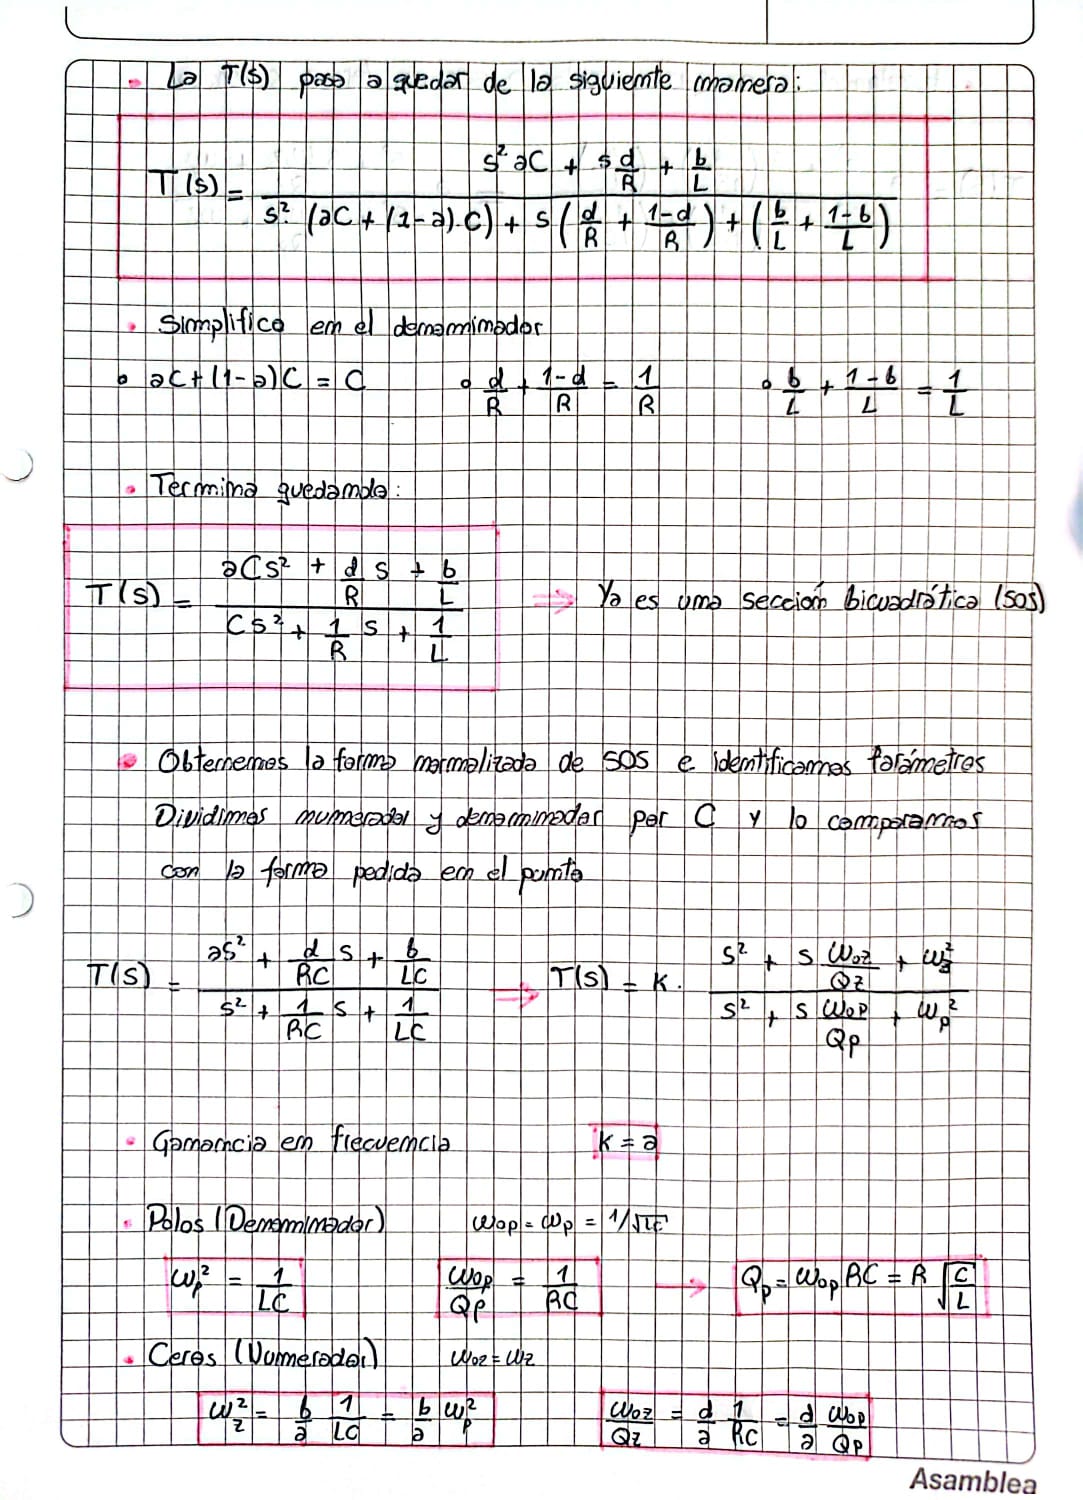 • La T(s) pasa a quedar de la siguiente manera:
T(s) = (s² aC + s d/R + b/L) / (s² (aC + (1-a).C) + s (d/R + 1-d/R) + (b/L + 1-b/L))
• Simplifico en el denominador
• aC + (1-a)C = C   • d/R + 1-d/R = 1/R   • b/L + 1-b/L = 1/L
• Termina quedando:
T(s) = (aCs² + d/R s + b/L) / (Cs² + 1/R s + 1/L) ⇒ Ya es una sección bicuadrática (SOS)
• Obtenemos la forma normalizada de SOS e identificamos parámetros
Dividimos numerador y denominador por C y lo comparamos
con la forma pedida en el punto
T(s) = (as² + d/RC s + b/LC) / (s² + 1/RC s + 1/LC) ⇒ T(s) = K . (s² + s ωoz/Qz + ωz²) / (s² + s ωop/Qp + ωp²)
• Ganancia en frecuencia   K = a
• Polos (Denominador)   ωop = ωp = 1/√LC
ωp² = 1/LC   ωop/Qp = 1/RC → Qp = ωop RC = R √(C/L)
• Ceros (Numerador)   ωoz = ωz
ωz² = b/a 1/LC = b/a ωp²   ωoz/Qz = d/a 1/RC = d/a ωop/Qp
Asamblea